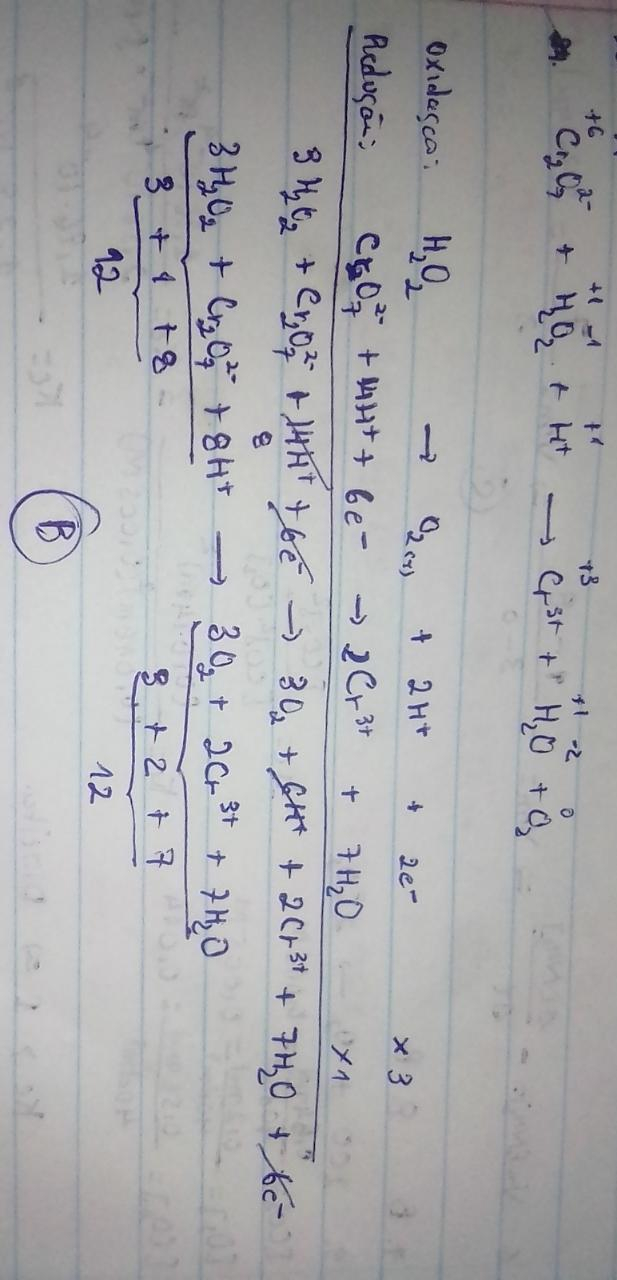 +6 +1 -1 +1 +3 +1 -2 0
Cr₂O₇²⁻ + H₂O₂ + H⁺ → Cr³⁺ + H₂O + O₂
Oxidação: H₂O₂ → O₂ + 2H⁺ + 2e⁻ x3
Redução: Cr₂O₇²⁻ + 14H⁺ + 6e⁻ → 2Cr³⁺ + 7H₂O x1
3H₂O₂ + Cr₂O₇²⁻ + 14H⁺ + 6e⁻ → 3O₂ + 6H⁺ + 2Cr³⁺ + 7H₂O + 6e⁻
8
3H₂O₂ + Cr₂O₇²⁻ + 8H⁺ → 3O₂ + 2Cr³⁺ + 7H₂O
3 + 1 + 8 3 + 2 + 7
12 12
B